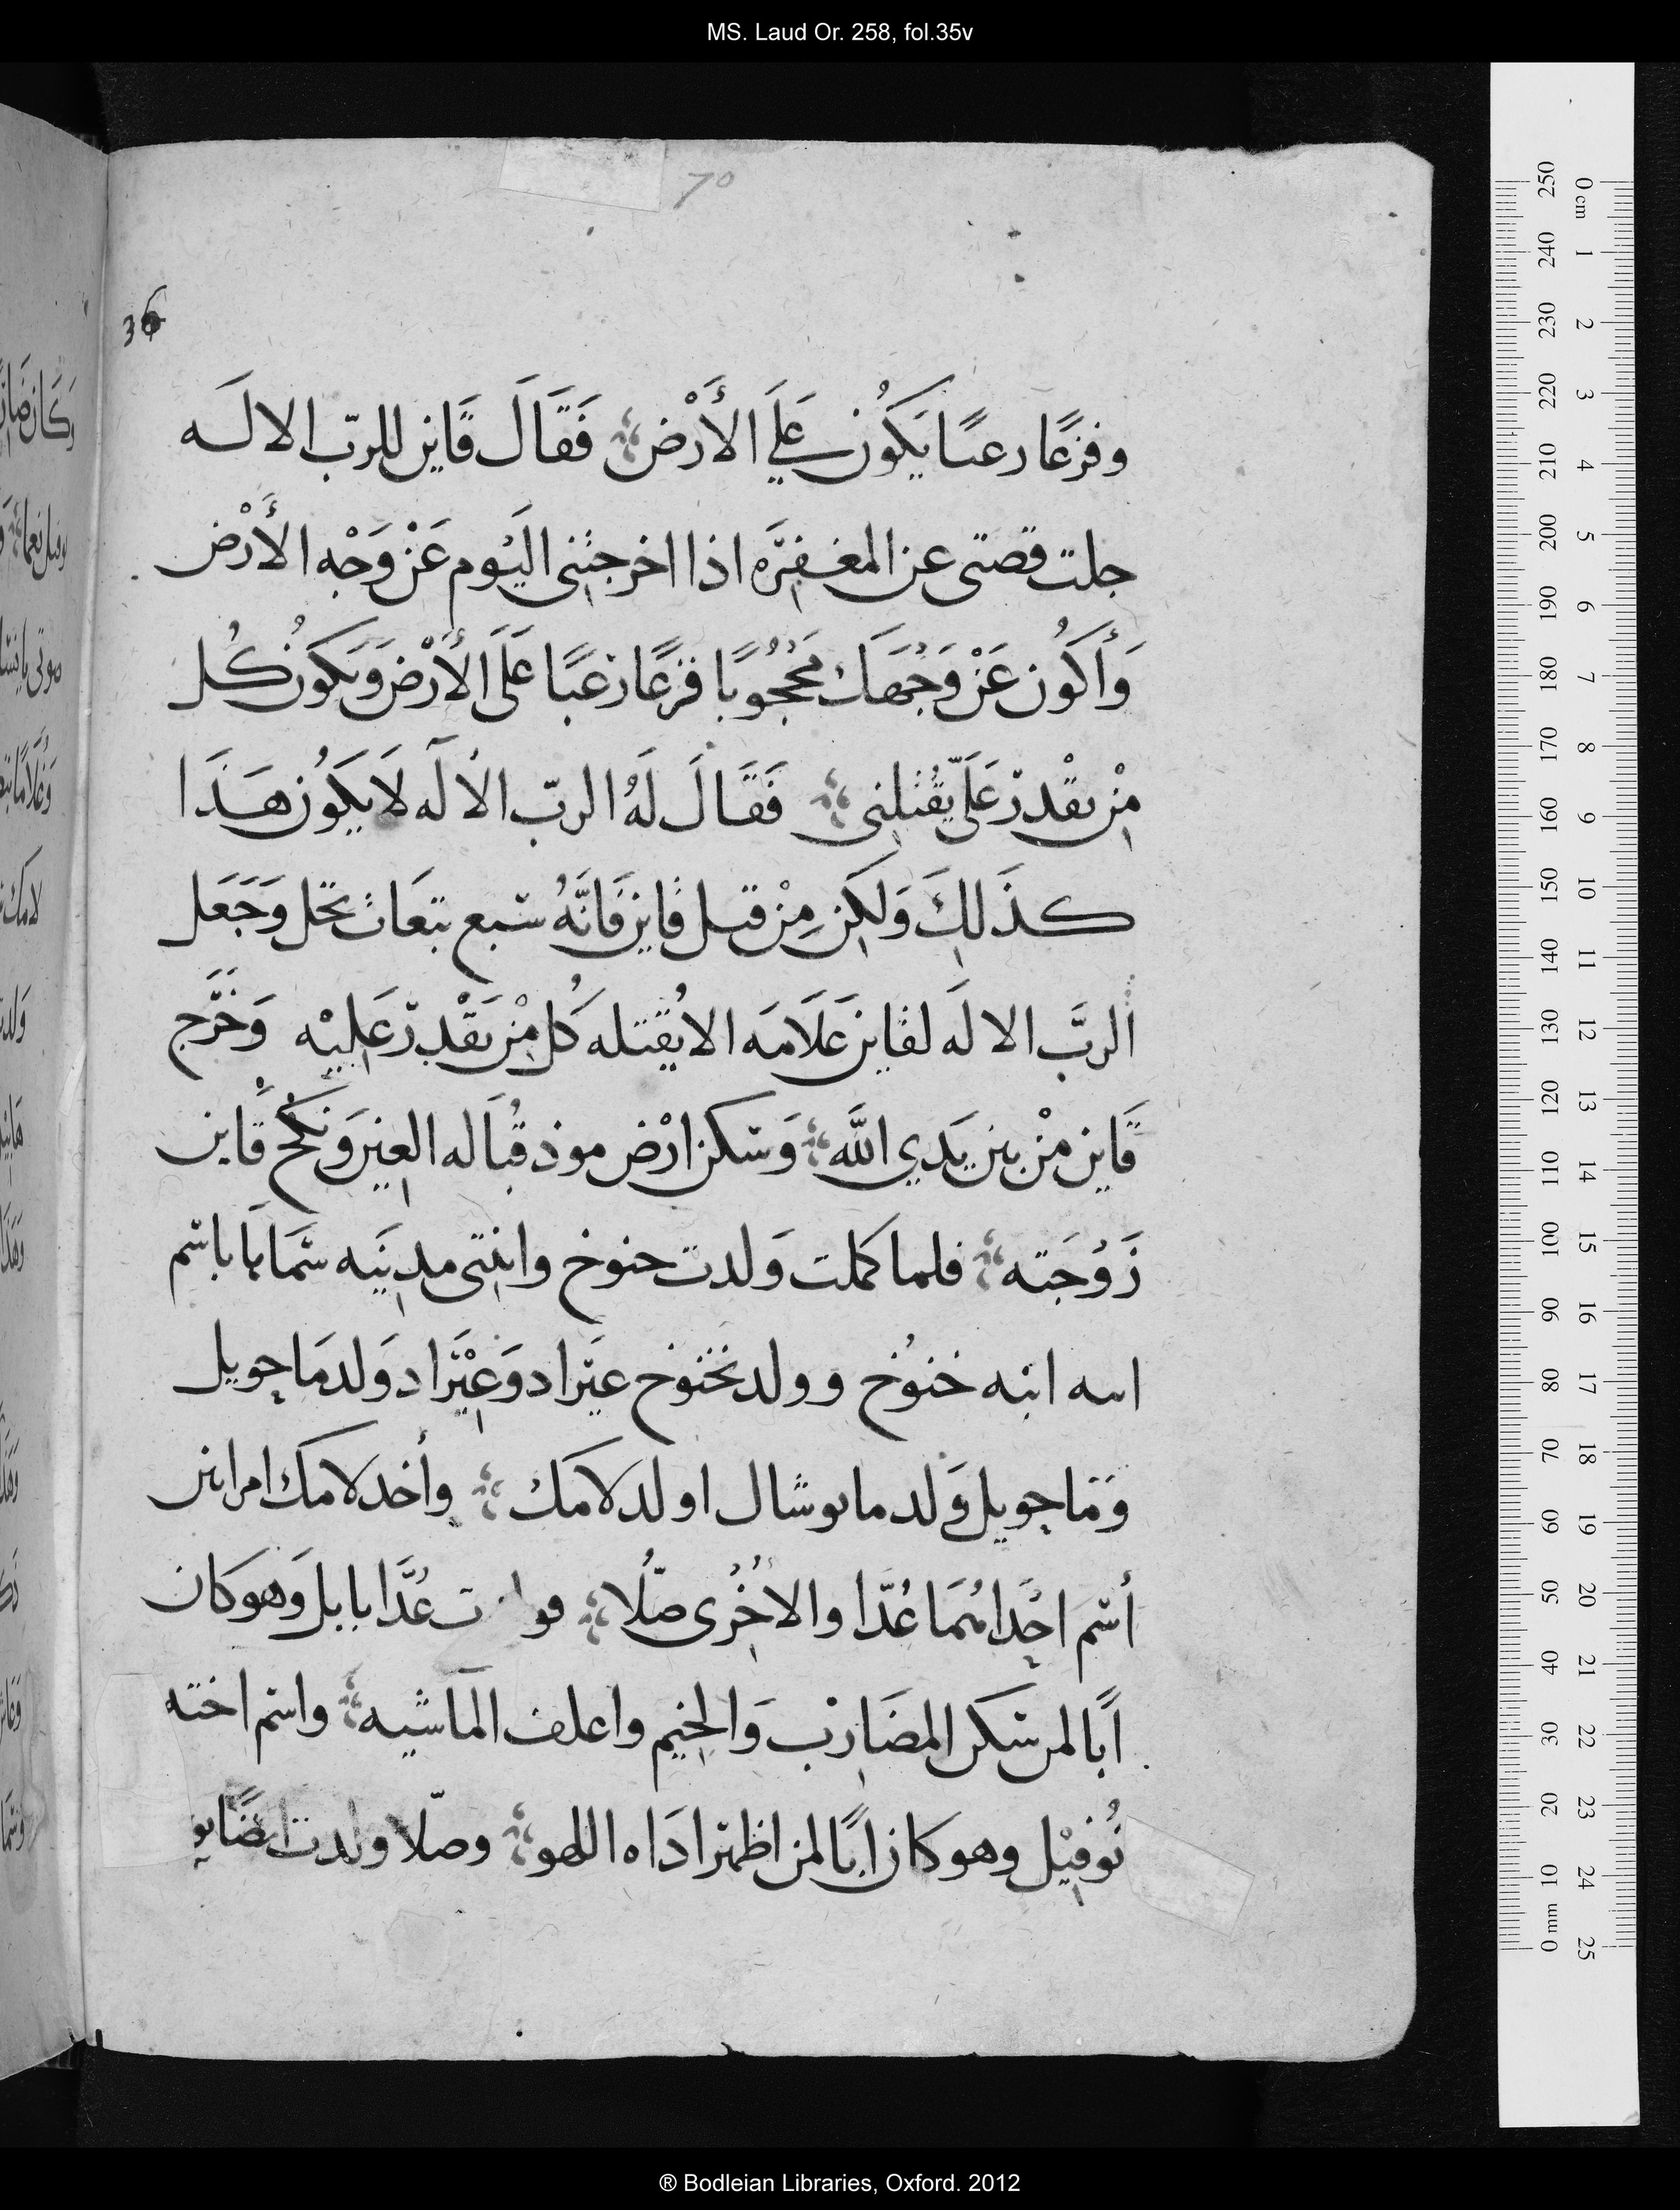 MS. Laud Or. 258, fol.35v
70
36
وفزعًا رعبًا يَكُون عَلَي الأَرْض فَقَالَ قَاين للربّ الالَه
جلت قصتى عن المغفرَه اذا اخرجتنى اليَوم عَنْ وَجْه الأَرْض
وَأَكُون عَنْ وَجْهَك مَحْجُوبًا فزعًا رَعبًا عَلَى الأَرْض وَيكَون كُل
مَنْ يقْدر عَلَىَّ يَقْتلنى فَقَالَ لَهُ الربّ الالَه لَا يَكُون هَذَا
كذَلكَ وَلكِن مِنْ قتل قاين فَانَّهُ سَبع تبعَات تحَل وَجَعَل
الربَّ الالَه لقاين عَلَامَه الا يقتله كُل مَنْ يَقْدر عَليْه وَخَرَج
قَاين مْن بين يَدي اللَّه وَسَكن ارْض موذ قُبَاله العين وَنكَح قَاين
زَوُجَته فلما كملت وَلدت حنوخ وابتنى مدينَه سَمَاهَا باسَم
اسه ابنه خنوُخ وولد نخنوخ عيَرَاد وَعِيْرَاد وَلد مَاحويل
وَمَاحويل وَلد مابوشال اولد لامَك وأخد لامك امراتين
أسَم احَداهُمَا عُدّا والاخُرى صَلُّا عُدَّا بابل وَهو كان
اَبًا لمن سَكن المضَارب وَالخيم واعلف المآشيه واسَم اخته
نُوفيْل وهو كان اَبًا لمن اظهَر ادَاه اللهو وصَلّا ولدت ايضًا
0 cm 1 2 3 4 5 6 7 8 9 10 11 12 13 14 15 16 17 18 19 20 21 22 23 24 25
250 240 230 220 210 200 190 180 170 160 150 140 130 120 110 100 90 80 70 60 50 40 30 20 10 0 mm
® Bodleian Libraries, Oxford. 2012